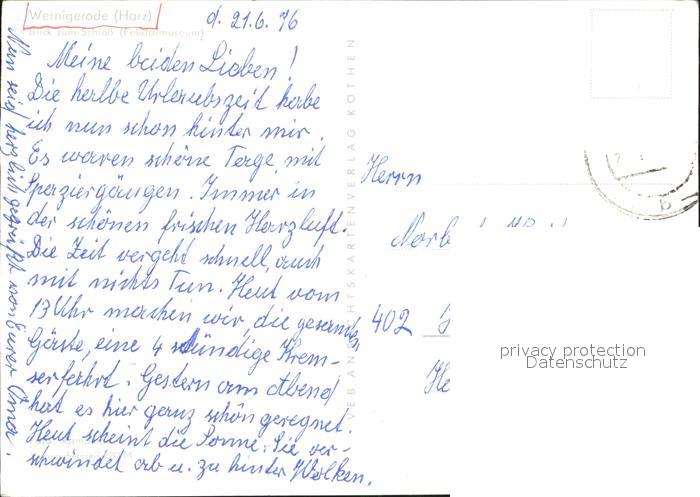 Wernigerode (Harz)
Blick zum Schloß (Feudalmuseum)
d. 21.6.76
Meine beiden Lieben!
Die halbe Urlaubszeit habe
ich nun schon hinter mir.
Es waren schöne Tage, mit
Spaziergängen. Immer in
der schönen frischen Harzluft.
Die Zeit vergeht schnell, auch
mit nichts Tun. Heut vom
13 Uhr machen wir, die gesamten
Gäste, eine 4 stündige Krem-
serfahrt. Gestern am Abend
hat es hier ganz schön geregnet.
Heut scheint die Sonne. Sie ver-
schwindet ab u. zu hinter Wolken.
Nun seid herzlich gegrüßt von Eurer
VERLAG KÖTHEN
Herrn
402
privacy protection
Datenschutz